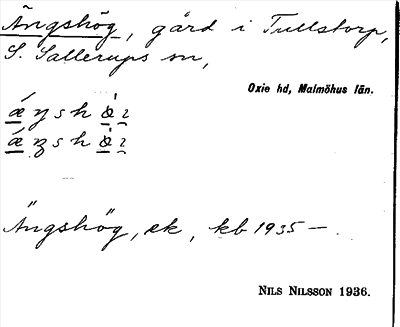 Ängshög, gård i Tullstorp,
S. Sallerups sn,
Oxie hd, Malmöhus län.
Ängshög, ek, kb 1935 —.
NILS NILSSON 1936.